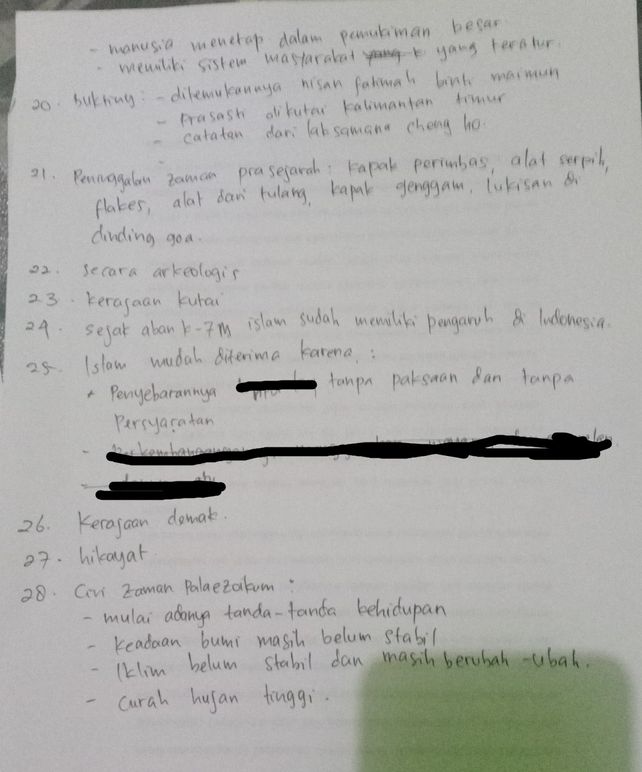 - manusia menetap dalam pemukiman besar
- memiliki sistem masyarakat yang teratur.
20. buktinya : - ditemukannya nisan fatimah binti maimun
- Prasasti di kutai kalimantan timur
- catatan dari laksamana cheng ho.
21. Peninggalan zaman prasejarah : kapak perimbas, alat serpih,
flakes, alat dari tulang, kapak genggam, lukisan di
dinding goa.
22. secara arkeologis
23. kerajaan kutai
24. sejak abad k-7 M islam sudah memiliki pengaruh di Indonesia.
25. Islam mudah diterima karena :
* Penyebarannya tanpa paksaan dan tanpa
Persyaratan
26. Kerajaan demak.
27. hikayat
28. Ciri zaman Palaezoikum :
- mulai adanya tanda-tanda kehidupan
- keadaan bumi masih belum stabil
- Iklim belum stabil dan masih berubah-ubah.
- Curah hujan tinggi.